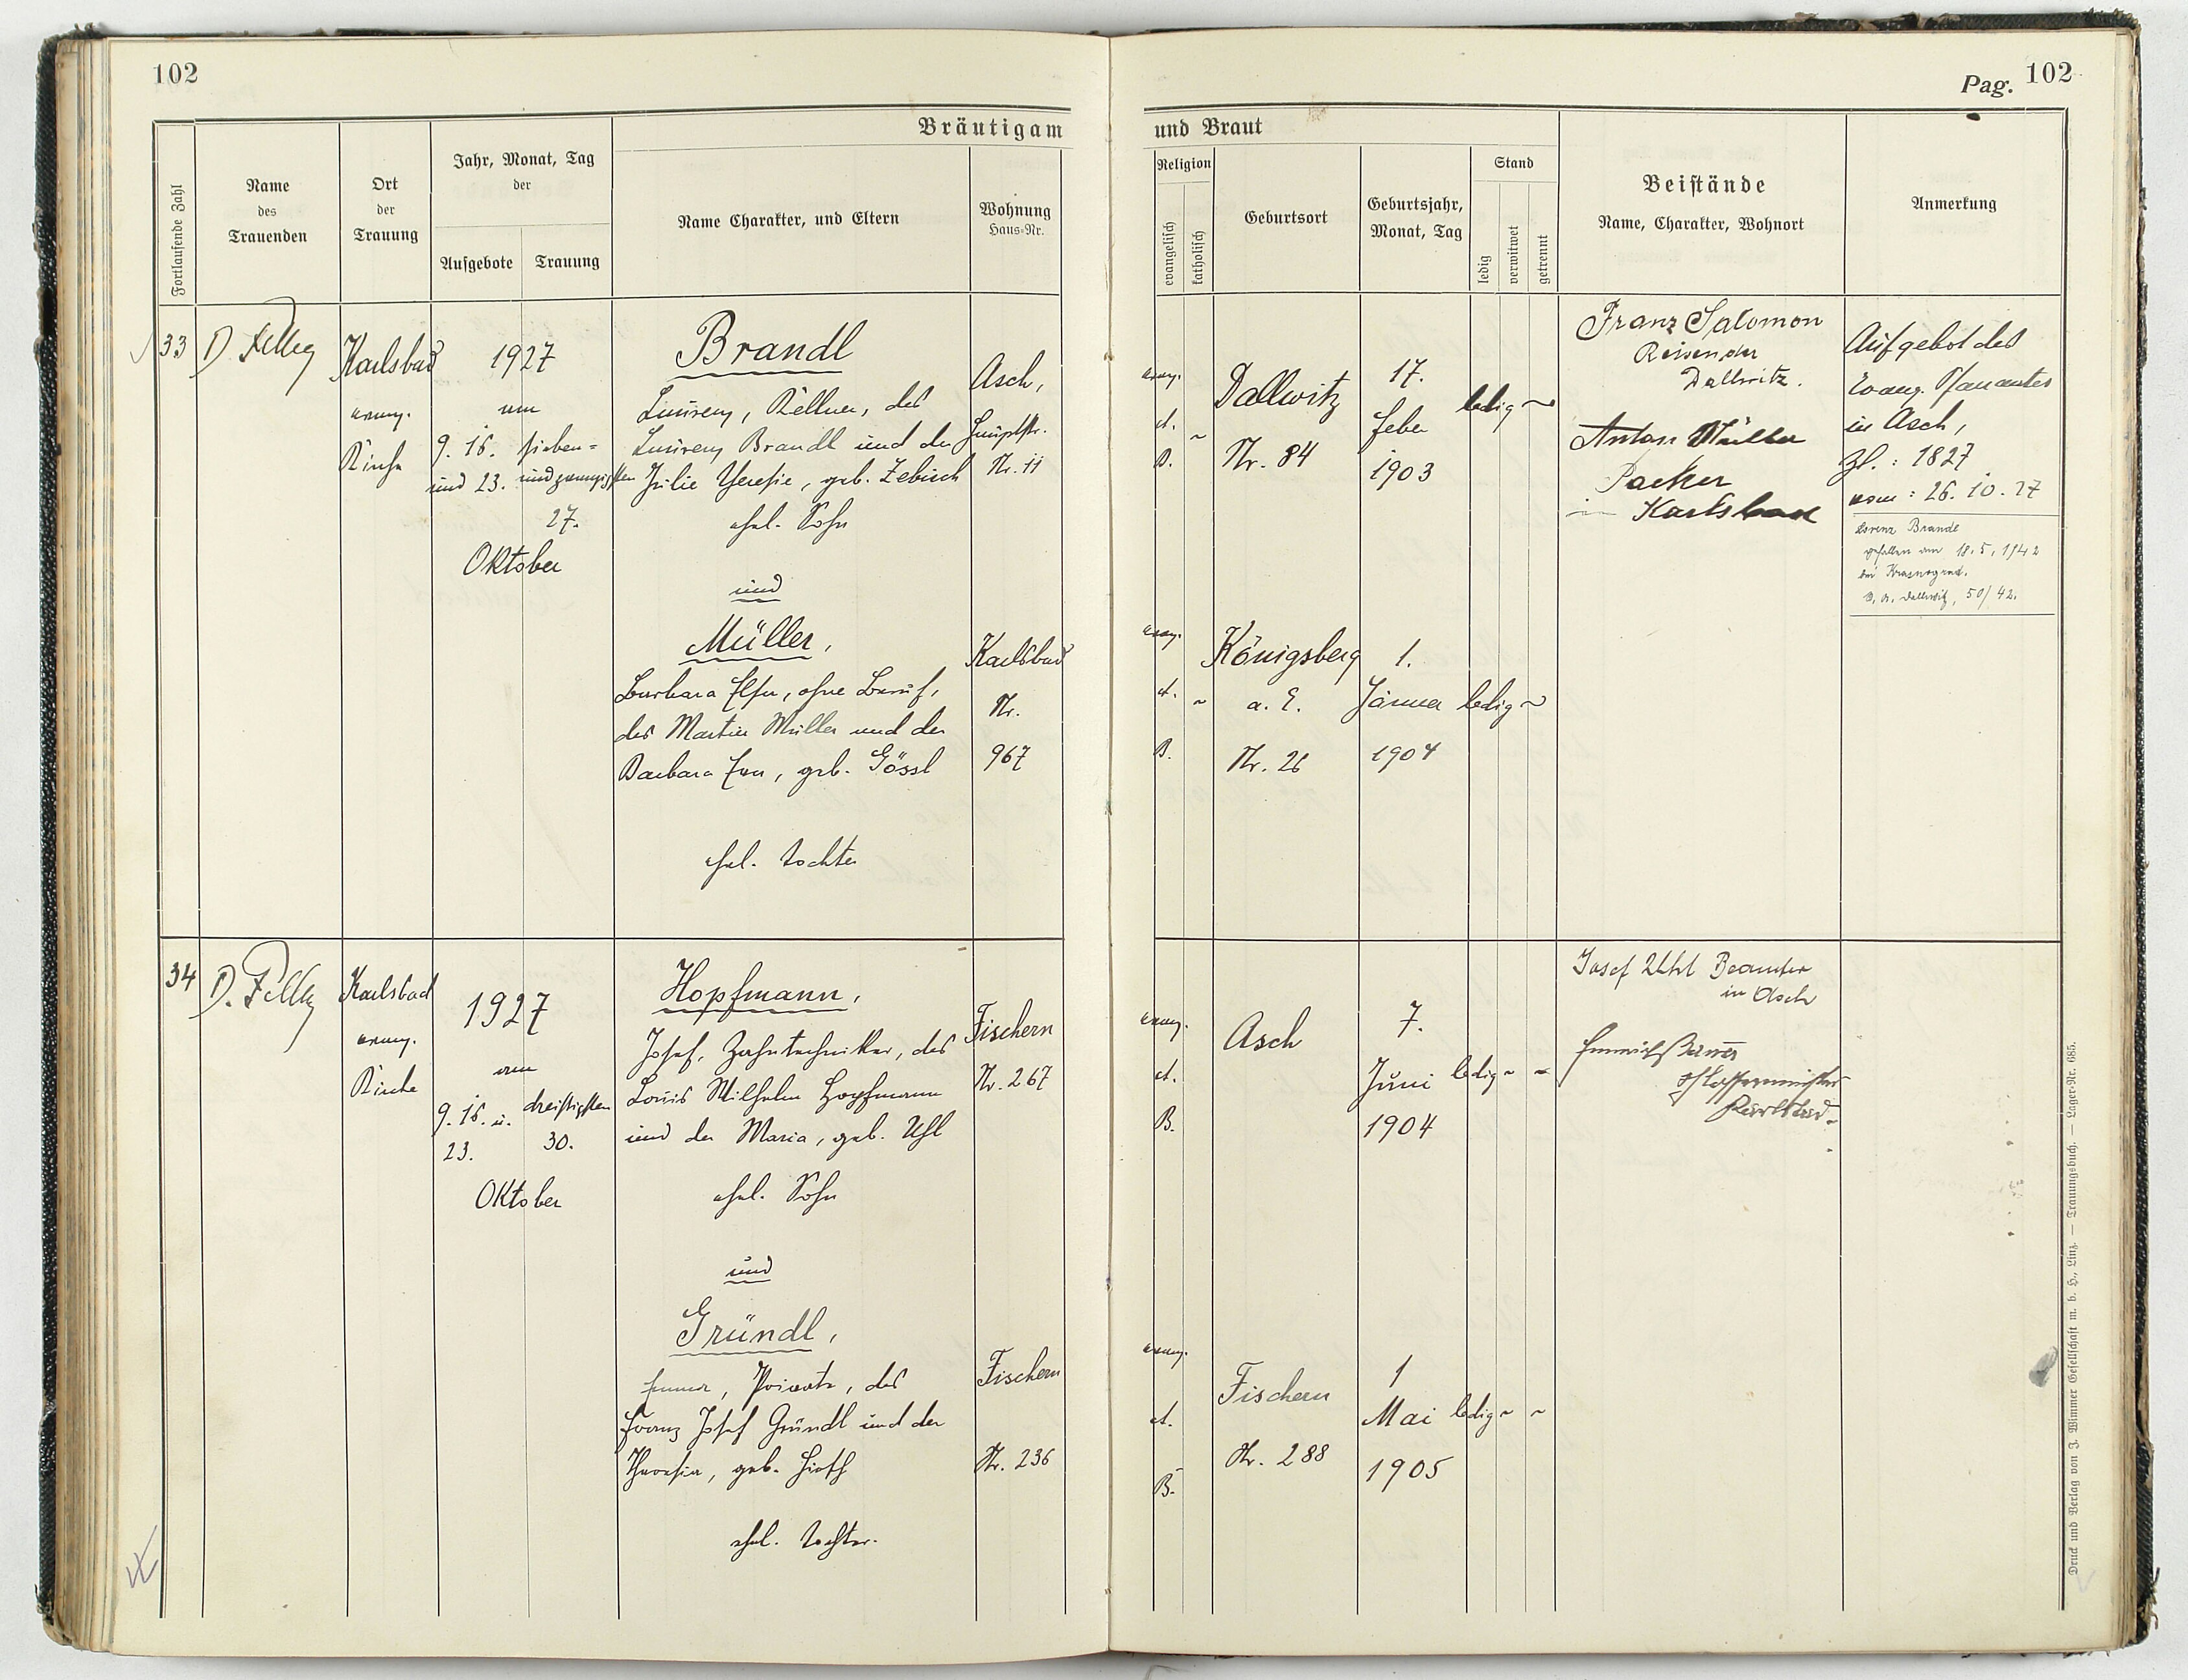 102
Pag. 102
Bräutigam
und Braut
Fortlaufende Zahl
Name
des
Trauenden
Ort
der
Trauung
Jahr, Monat, Tag
der
Aufgebote
Trauung
Name Charakter, und Eltern
Wohnung
Haus-Nr.
Religion
evangelisch
katholisch
Geburtsort
Geburtsjahr,
Monat, Tag
Stand
ledig
verwitwet
getrennt
Beistände
Name, Charakter, Wohnort
Anmerkung
33
D.
Karlsbad
evang.
Kirche
1927
am
9. 16.
und 23.
sieben=
undzwanzigsten
27.
Oktober
Brandl
Laurenz, Kellner, des
Laurenz Brandl und der
Julie Theresie, geb. Zebisch
ehel. Sohn
Asch,
Hauptstr.
Nr. 11
evang.
A.
B.
Dallwitz
Nr. 84
17.
Feber
1903
ledig
Franz Salomon
Reisender
Dallwitz.
Anton Müller
Packer
in Karlsbad
Aufgebot des
Evang. Pfarramtes
in Asch,
Zl. : 1827
vom : 26. 10. 27
Lorenz Brandl
gefallen am 18. 5. 1942
bei Krasnograd.
Dallwitz, 50/42.
und
Müller,
Barbara Elsa, ohne Beruf,
des Martin Müller und der
Barbara Eva, geb. Gössl
ehel. Tochter
Karlsbad
Nr.
967
evang.
A.
B.
Königsberg
a. E.
Nr. 26
1.
Jänner
1904
ledig
34
D.
Karlsbad
evang.
Kirche
1927
am
9. 16. u.
23.
dreißigsten
30.
Oktober
Hopfmann,
Josef, Zahntechniker, des
Louis Wilhelm Hopfmann
und der Maria, geb. Uhl
ehel. Sohn
Fischern
Nr. 267
evang.
A.
B.
Asch
7.
Juni
1904
ledig
Josef Uhl Beamter
in Asch
Karlsbad
und
Gründl,
Emma, Private, des
Franz Josef Gründl und der
Theresia, geb. Hirth
ehel. Tochter.
Fischern
Nr. 236
evang.
A.
B.
Fischern
Nr. 288
1
Mai
1905
ledig
Druck und Verlag von J. Wimmer Gesellschaft m. b. H., Linz. — Trauungsbuch. — Lager-Nr. 685.